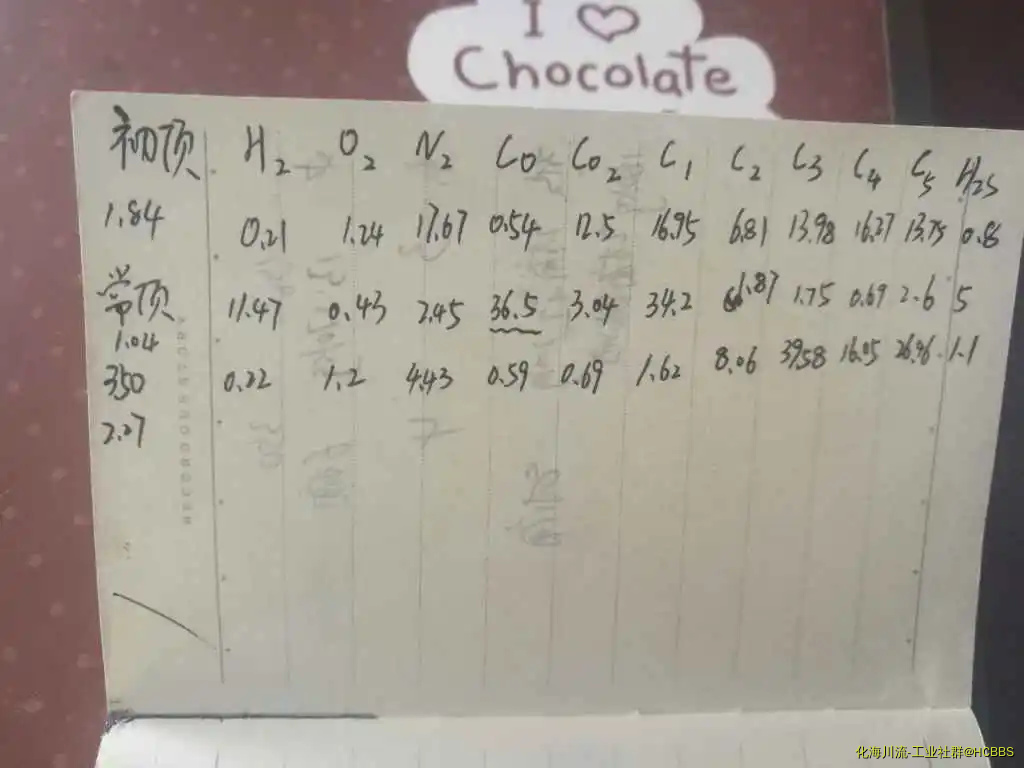 I ♡
Chocolate
初顶 H₂ O₂ N₂ CO CO₂ C₁ C₂ C₃ C₄ C₅ H₂S
1.84 0.21 1.24 17.67 0.54 12.5 16.95 6.81 13.98 16.27 13.75 0.86
常顶 11.47 0.43 2.45 36.5 3.04 34.2 1.87 1.75 0.69 2.6 5
1.04
350 0.22 1.2 4.43 0.59 0.69 1.62 8.06 39.58 16.05 26.96 1.1
2.27
化海川流-工业社群@HCBBS